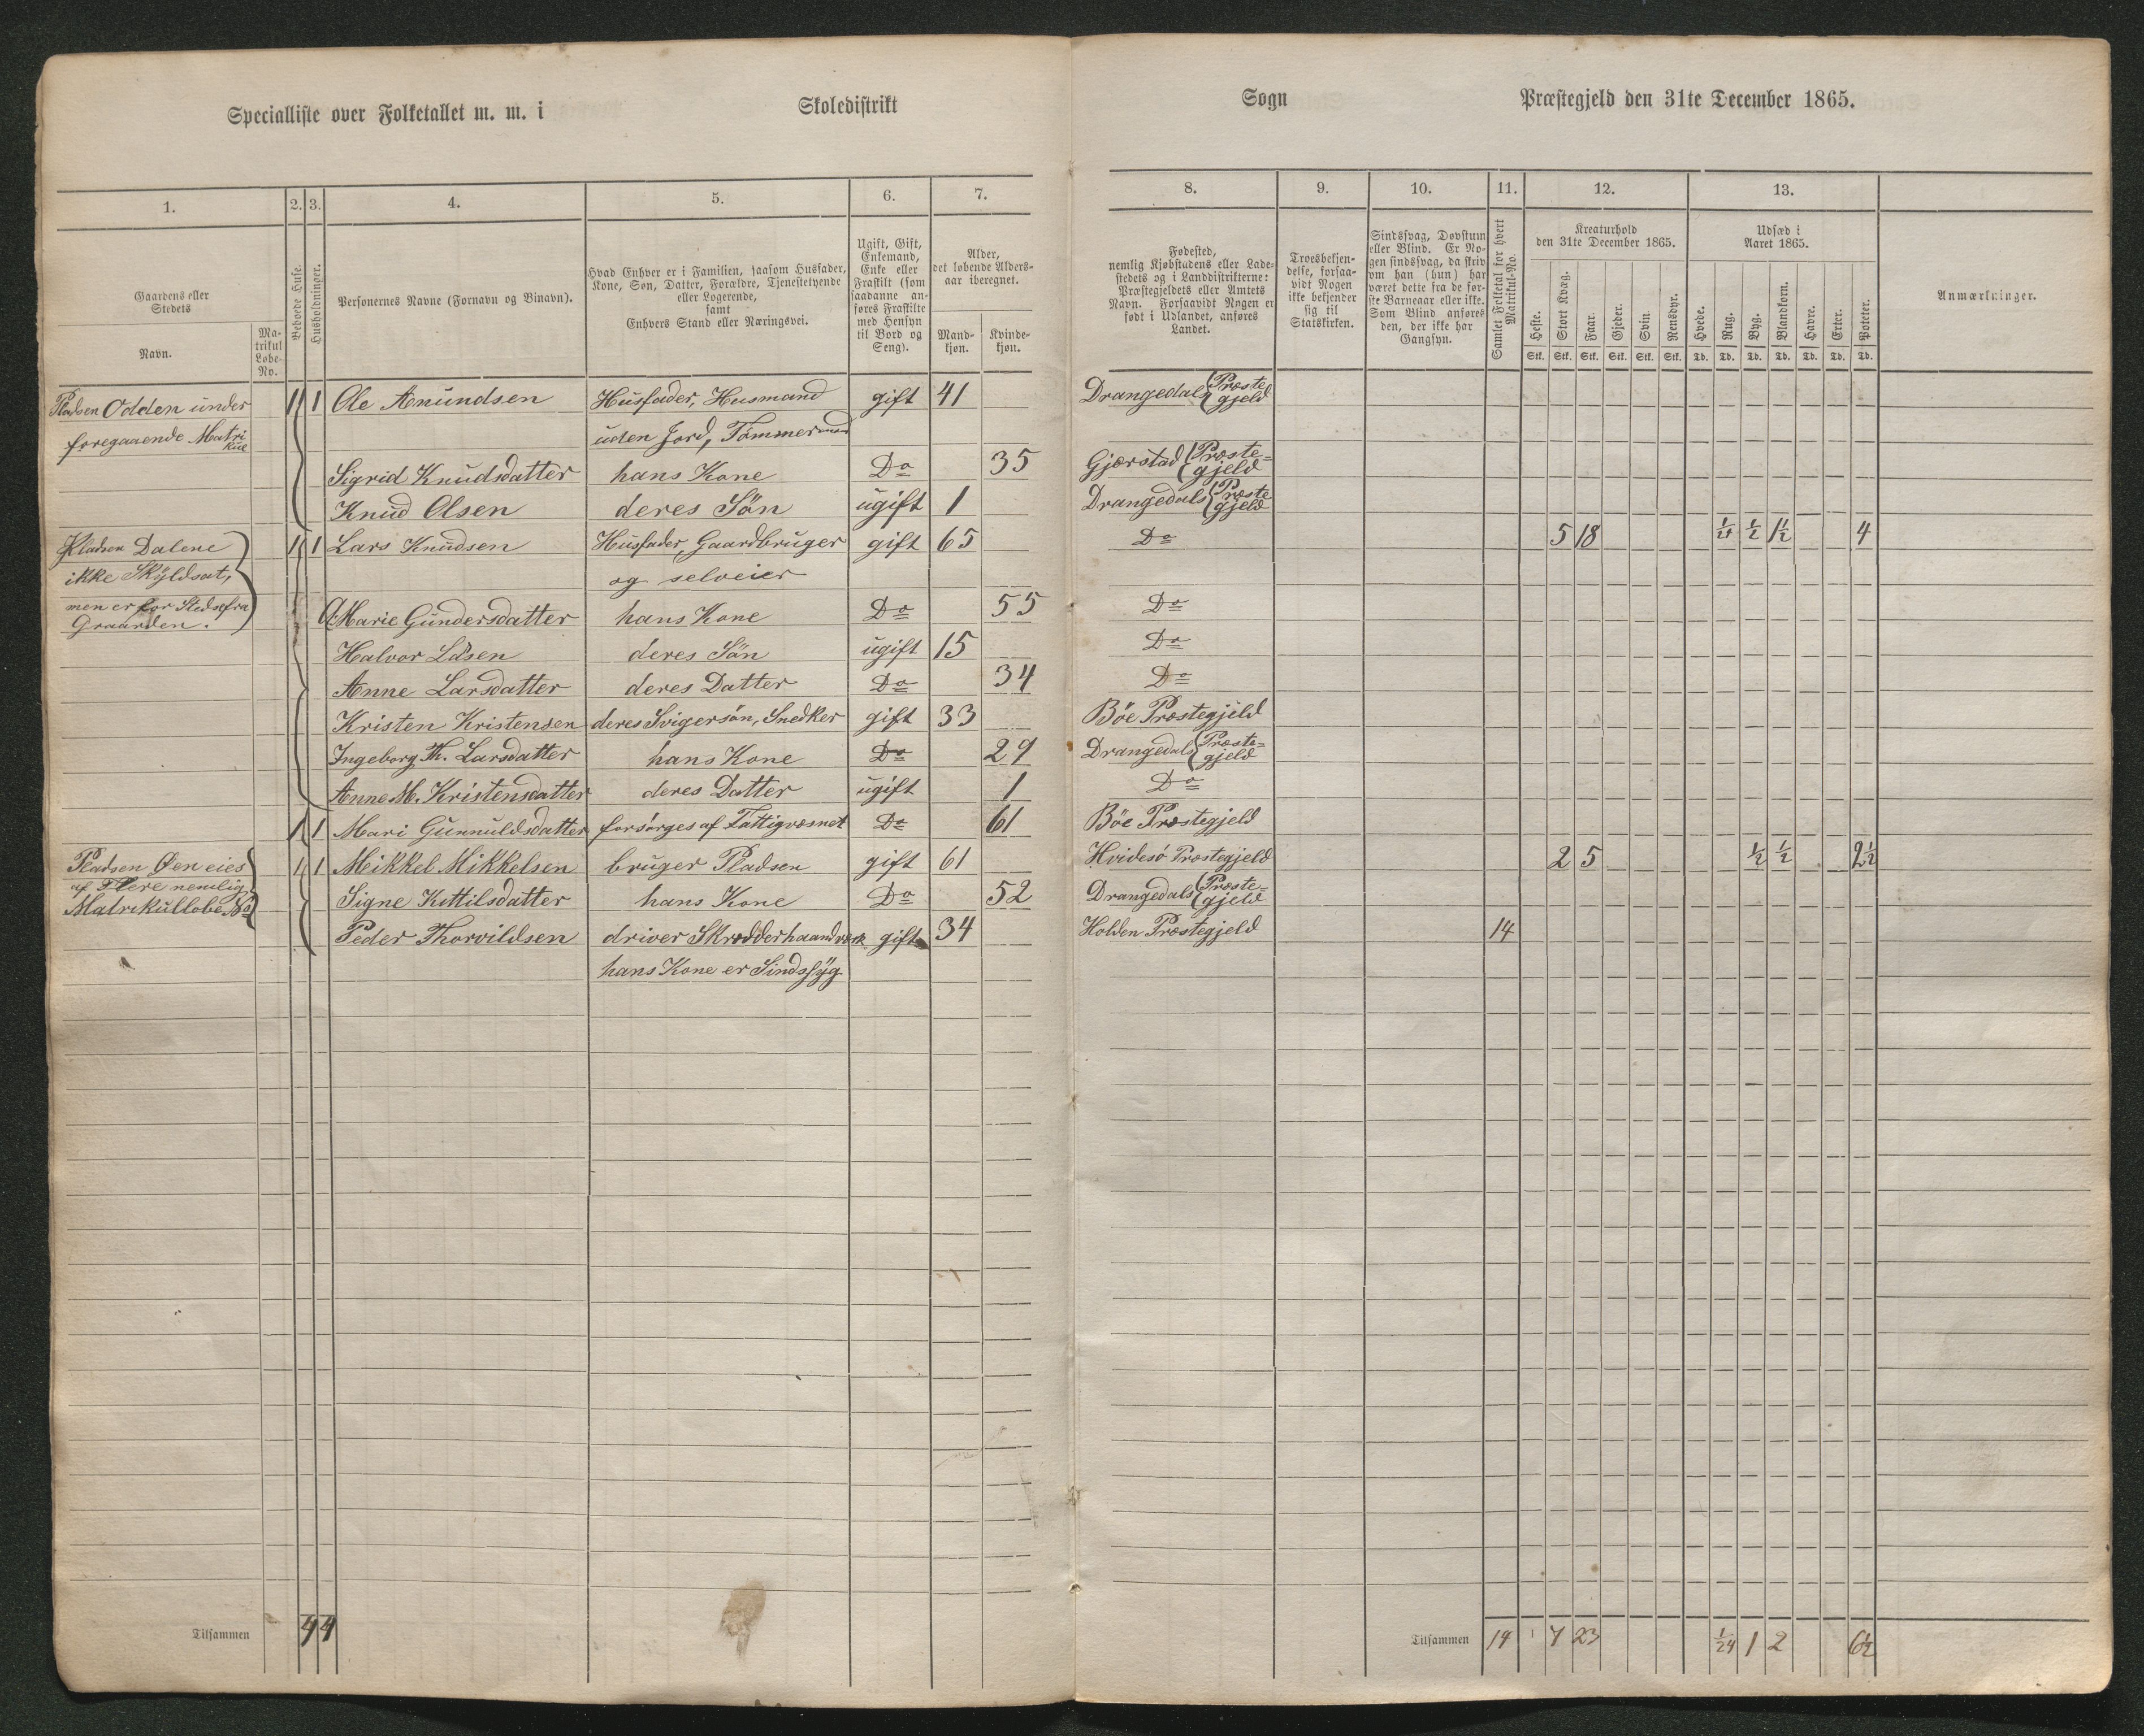 Specialliste over Folketallet m. m. i Skoledistrikt Sogn Præstegjeld den 31te December 1865.
1. 2. 3. 4. 5. 6. 7. 8. 9. 10. 11. 12. 13.
Gaardens eller Stedets
Navn.
Matrikul Løbe-No.
Beboede Huse.
Husholdninger.
Personernes Navne (Fornavn og Binavn).
Hvad Enhver er i Familien, saasom Husfader,
Kone, Søn, Datter, Forældre, Tjenestetyende
eller Logerende,
samt
Enhvers Stand eller Næringsvei.
Ugift, Gift,
Enkemand,
Enke eller
Fraskilt (som
saadanne an-
føres Fraskilte
med Hensyn
til Bord og
Seng).
Alder,
det løbende Alders-
aar iberegnet.
Mand-
kjøn.
Kvinde-
kjøn.
Fødested,
nemlig Kjøbstadens eller Lade-
stedets og i Landdistrikterne:
Præstegjeldets eller Amtets
Navn. Forsaavidt Nogen er
født i Udlandet, anføres
Landet.
Troesbekjen-
delse, forsaa-
vidt Nogen
ikke bekjender
sig til
Statskirken.
Sindssvag, Døvstum
eller Blind. Er No-
gen sindssvag, da skriv
om han (hun) har
været dette fra de før-
ste Barneaar eller ikke.
Som Blind anføres
den, der ikke har
Gangsyn.
Samlet Folketal for hvert
Matrikul-No.
Kreaturhold
den 31te December 1865.
Heste. Stort Kvæg. Faar. Gjeder. Svin. Rensdyr.
Stk. Stk. Stk. Stk. Stk. Stk.
Udsæd i
Aaret 1865.
Hvede. Rug. Byg. Blandkorn. Havre. Erter. Poteter.
Td. Td. Td. Td. Td. Td. Td.
Anmærkninger.
Pladsen Odden under 1 1 Ole Amundsen Husfader, Husmand gift 41 Drangedals Præstegjeld
foregaaende Matrikul uden Jord, Tømmermand
Sigrid Knudsdatter hans Kone Do 35 Gjerstad Præste=gjeld
Knud Olsen deres Søn ugift 1 Drangedals Præstegjeld
Pladsen Dalene 1 1 Lars Knudsen Husfader, Gaardbruger gift 65 Do 5 18 1/24 1/2 1 1/2 4
ikke Skyldsat, og selveier
men er for Stedse fra A. Marie Gundersdatter hans Kone Do 55 Do
Graarden.
Halvor Låsen deres Søn ugift 15 Do
Anne Larsdatter deres Datter Do 34 Do
Kristen Kristensen deres Svigersøn, Snedker gift 33 Böe Præstegjeld
Ingeborg Th. Larsdatter hans Kone Do 29 Drangedals Præste=gjeld
Anne M. Kristensdatter deres Datter ugift 1 Do
1 1 Mari Gunnuldsdatter forsørges af Fattigvæsnet Do 61 Böe Præstegjeld
Pladsen Øen eies 1 1 Mikkel Mikkelsen bruger Pladsen gift 61 Hvidesö Præstegjeld 2 5 1/2 1/2 2 1/2
af Flere nemlig Signe Kittilsdatter hans Kone Do 52 Drangedals Præste=gjeld
Matrikulløbe No Peder Thorvildsen driver Skrædderhaandværk gift 34 Holden Præstegjeld 14
hans Kone er Sindssyg
Tilsammen 4 4 Tilsammen 14 7 23 1/24 1 2 6 1/2